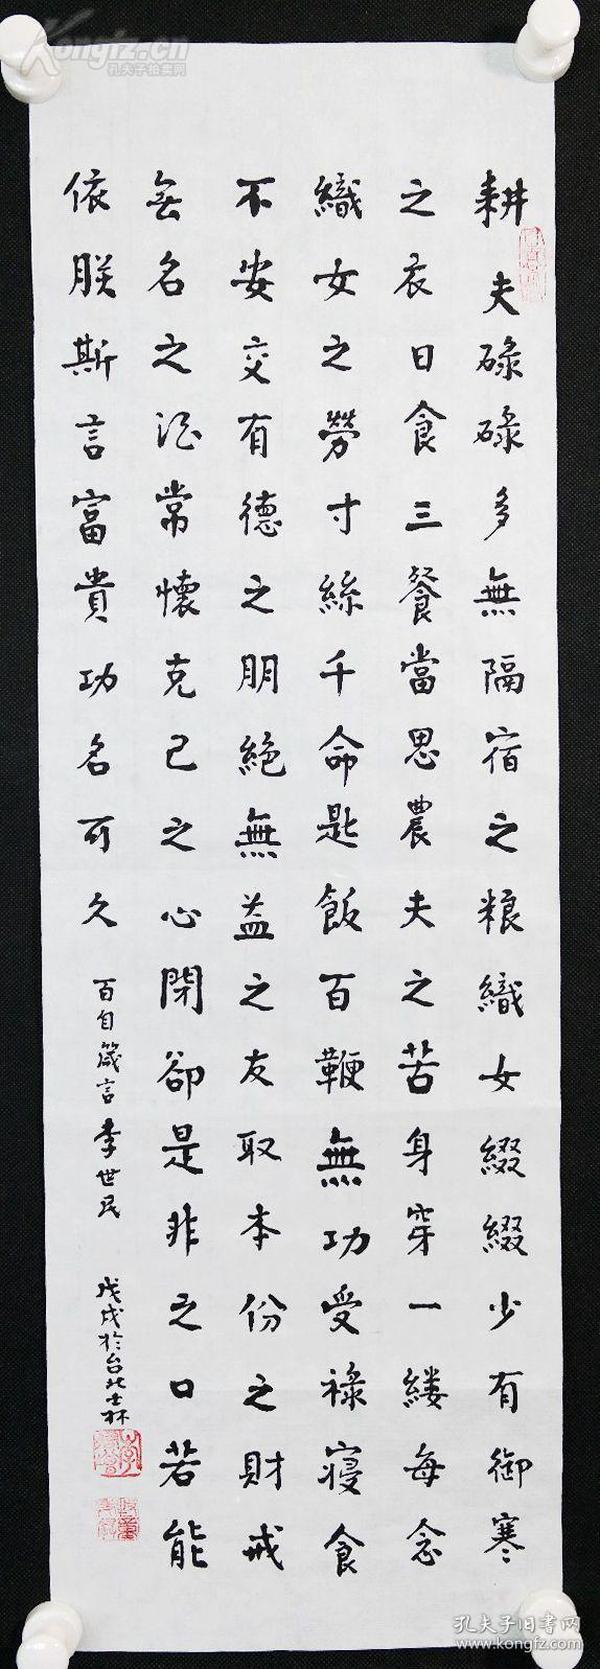 耕夫碌碌多無隔宿之粮織女綴綴少有御寒
之衣日食三餐當思農夫之苦身穿一縷每念
織女之勞寸絲千命匙飯百鞭無功受祿寢食
不安交有德之朋絕無益之友取本份之財戒
無名之酒常懷克己之心閉卻是非之口若能
依朕斯言富貴功名可久
百自箴言李世民
戊戌於台北士林
Kongfz.cn
孔夫子拍卖网
孔夫子旧书网
www.kongfz.com